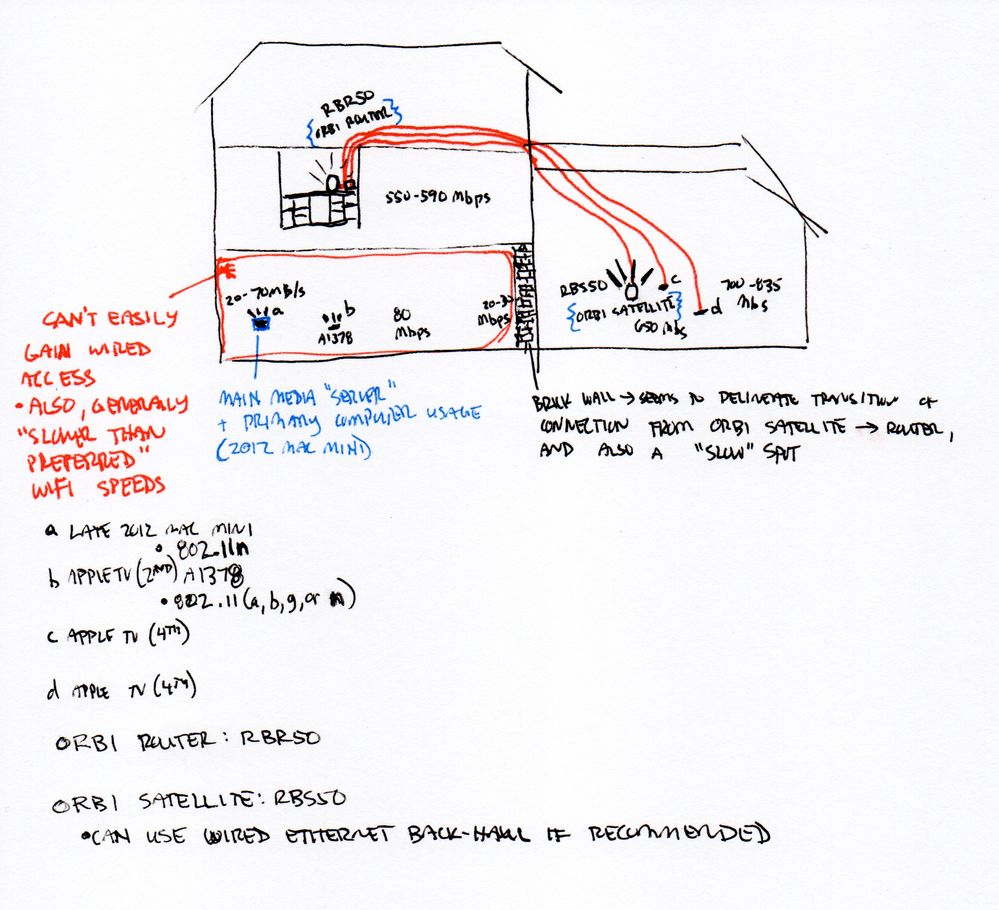 RBR50
{ORBI ROUTER}
550-590 Mbps
20-70MB/s
a
b
A1378
80
Mbps
20-30
Mbps
RBS50
{ORBI SATELLITE}
650 Mbs
c
d
700-835
Mbs
CAN'T EASILY
GAIN WIRED
ACCESS
• ALSO, GENERALLY
"SLOWER THAN
PREFERRED"
WIFI SPEEDS
MAIN MEDIA "SERVER"
+ PRIMARY COMPUTER USAGE
(2012 MAC MINI)
BRICK WALL → SEEMS TO DELINEATE TRANSITION OF
CONNECTION FROM ORBI SATELLITE → ROUTER,
AND ALSO A "SLOW" SPOT
a LATE 2012 MAC MINI
• 802.11n
b APPLE TV (2ND) A1378
• 802.11 (a, b, g, or n)
c APPLE TV (4TH)
d APPLE TV (4TH)
ORBI ROUTER: RBR50
ORBI SATELLITE: RBS50
• CAN USE WIRED ETHERNET BACK-HAUL IF RECOMMENDED